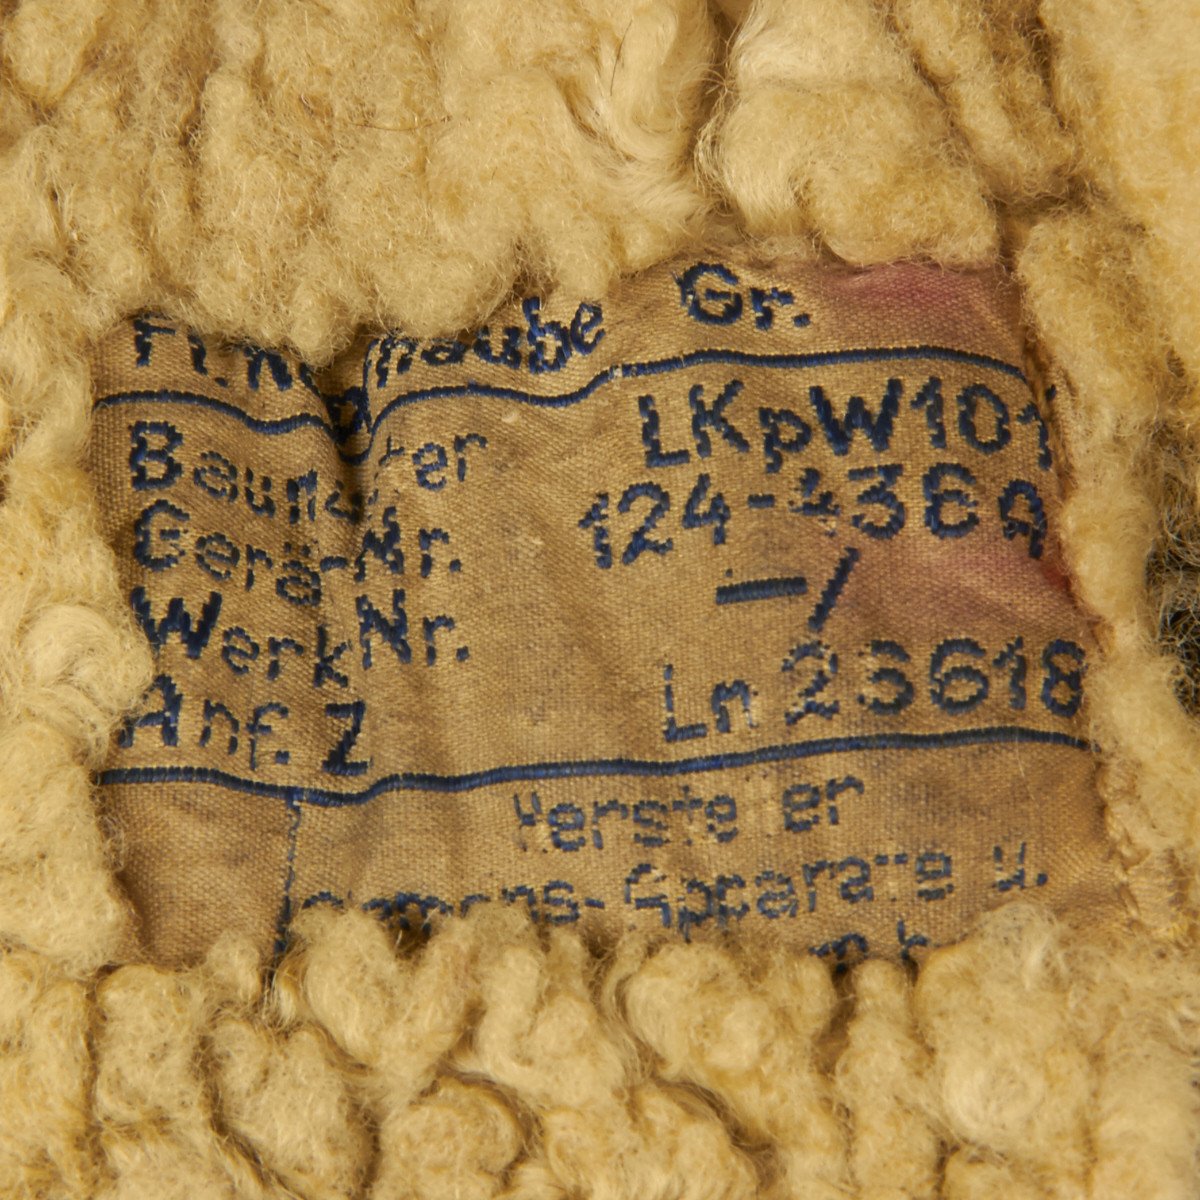 haube Gr.
Baumuster LKpW101
Gerät-Nr. 124-436A
Werk Nr. -/
Anf. Z Ln 26618
Hersteller
Siemens-Apparate u.